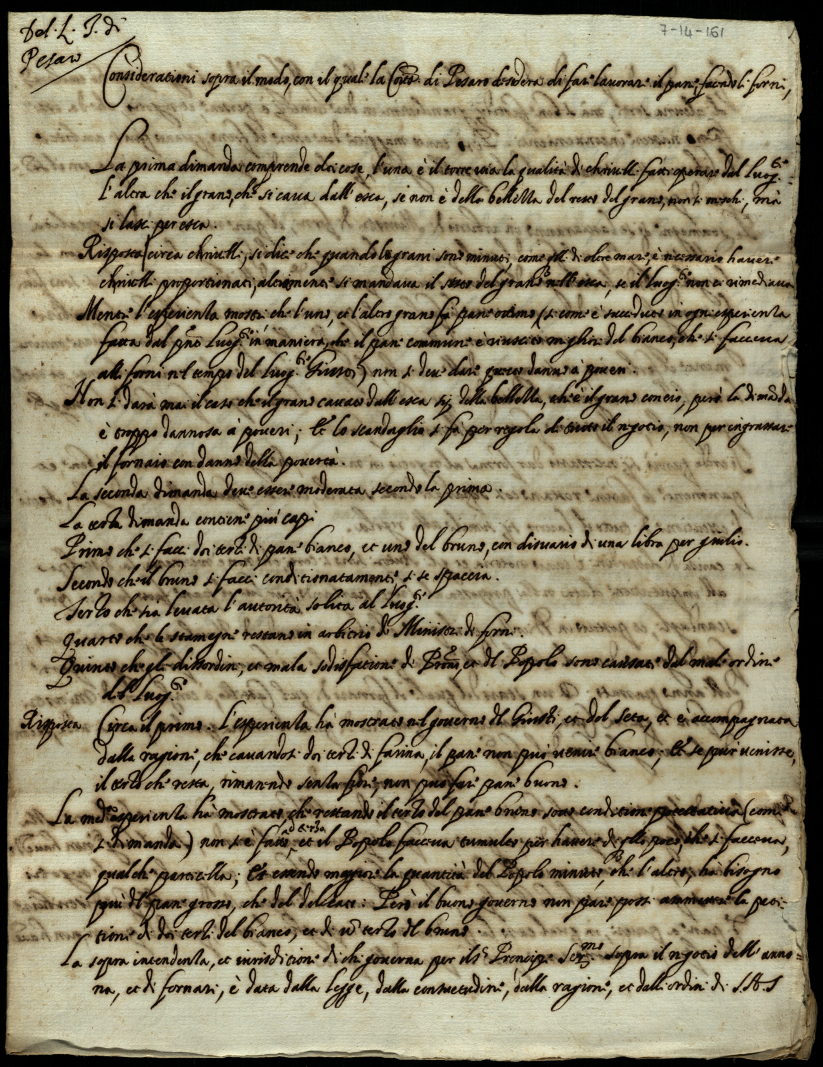 Del. L. T. di
Pesaro
7-14-161
Considerationi sopra il modo, con il quale la Com.tà di Pesaro desidera di far lavorare il pane, facendoli forni,
La prima dimanda comprende doi cose, l'una è il torre via la qualità di chrivelli fatti operare dal Luog.te
l'altra che il grano, che si cava dall'esca, se non è della bellezza del resto del grano, non si meschi, mà
si lasci per esca.
Risposta circa chrivelli, si dice che quando li grani sono minuti, come qlli di oltre mare, è necessario havere
chrivelli proportionati, altrimente si mandava il resto del grano nell'esca, se il Luog.te non ci rimediava
Mentre l'esperienza mostra che l'uno, et l'altro grano fà pane ottimo (si come è succeduto in ogni esperienza
fatta dal pnte Luog.te in maniera, che il pane commune è riuscito meglior del bianco, che si faceva
alli forni nel tempo del Luog.te Giusti) non si deve dare questo danno à poveri.
Non si darà mai il caso che il grano cavato dall'esca sij della bellezza, che è il grano concio, però la dimanda
è troppo dannosa à poveri; Et lo scandaglio si fà per regola di tutto il negotio, non per ingrassare
il fornaio con danno della povertà.
La seconda dimanda deve essere moderata secondo la prima.
La terza dimanda contiene più capi
Primo che si facci doi terzi di pane bianco, et uno del bruno, con disvario di una libra per giulio.
Secondo che il bruno si facci conditionatamente, si se spaccia.
Terzo che sia levata l'autorità solita al Luog.te
Quarto che le stamegne restano in arbitrio di Ministri di forni.
Quinto che gli disordini, et mala sodisfatione di et del Popolo sono causati dal male ordine
del Luog.te
Risposta Circa il primo. L'esperienza hà mostrato nel governo del Giusti, et del Seta, et è accompagnata
dalla ragione, che cavandosi doi terzi di farina, il pane non può venire bianco; Et se pure venisse,
il terzo che resta, rimanendo senza fiore, non può fare pane buono.
La med.ma esperienza hà mostrato, che restando il terzo del pane bruno sotto conditione (come
si dimanda) non si è fatto, et il Popolo faceva tumulto per havere di qllo poco, che si faceva,
qualche particella; Et essendo maggiore la quantità del Popolo minuto, che l'altro, hà bisogno
più del pane grosso, che del delicato: Però il buono governo non pare possi ammettere la peti-
tione di doi terzi del bianco, et di un terzo del bruno.
La sopra intendenza, et iurisditione di chi governa per il Prencipe Ser.mo sopra il negotio dell'anno-
na, et di fornari, è data dalla legge, dalla consuetudine, dalla ragione, et dalli ordini di S.A.S